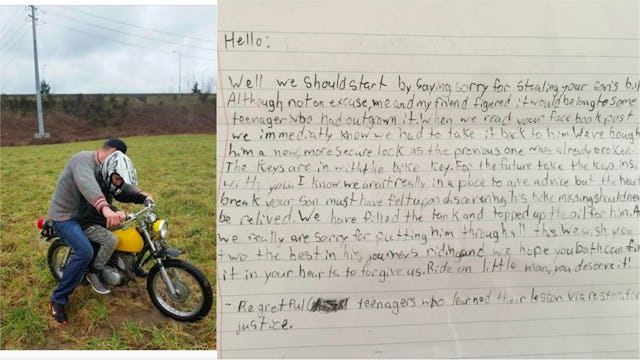 Hello:
Well we should start by saying sorry for stealing your son's bi
Although not an excuse, me and my friend figured it would belong to some
teenager who had outgrown it. When we read your face book post
we immediatly knew we had to take it back to him. We've bough
him a new, more secure lock as the previous one was already broken.
The keys are in with the bike key. For the future take the keys ins
with you. I know we arent really in a place to give advice but the hear
break your son must have felt upon discovering his bike missing should nev
be relived. We have filled the tank and topped up the oil for him. A
we really are sorry for putting him through all this. We wish you
two the best in his journeys riding and we hope you both can fi
it in your hearts to forgive us. Ride on little man, you deserve it!
~ Regretful teenagers who learned their lesson via restorative
justice.